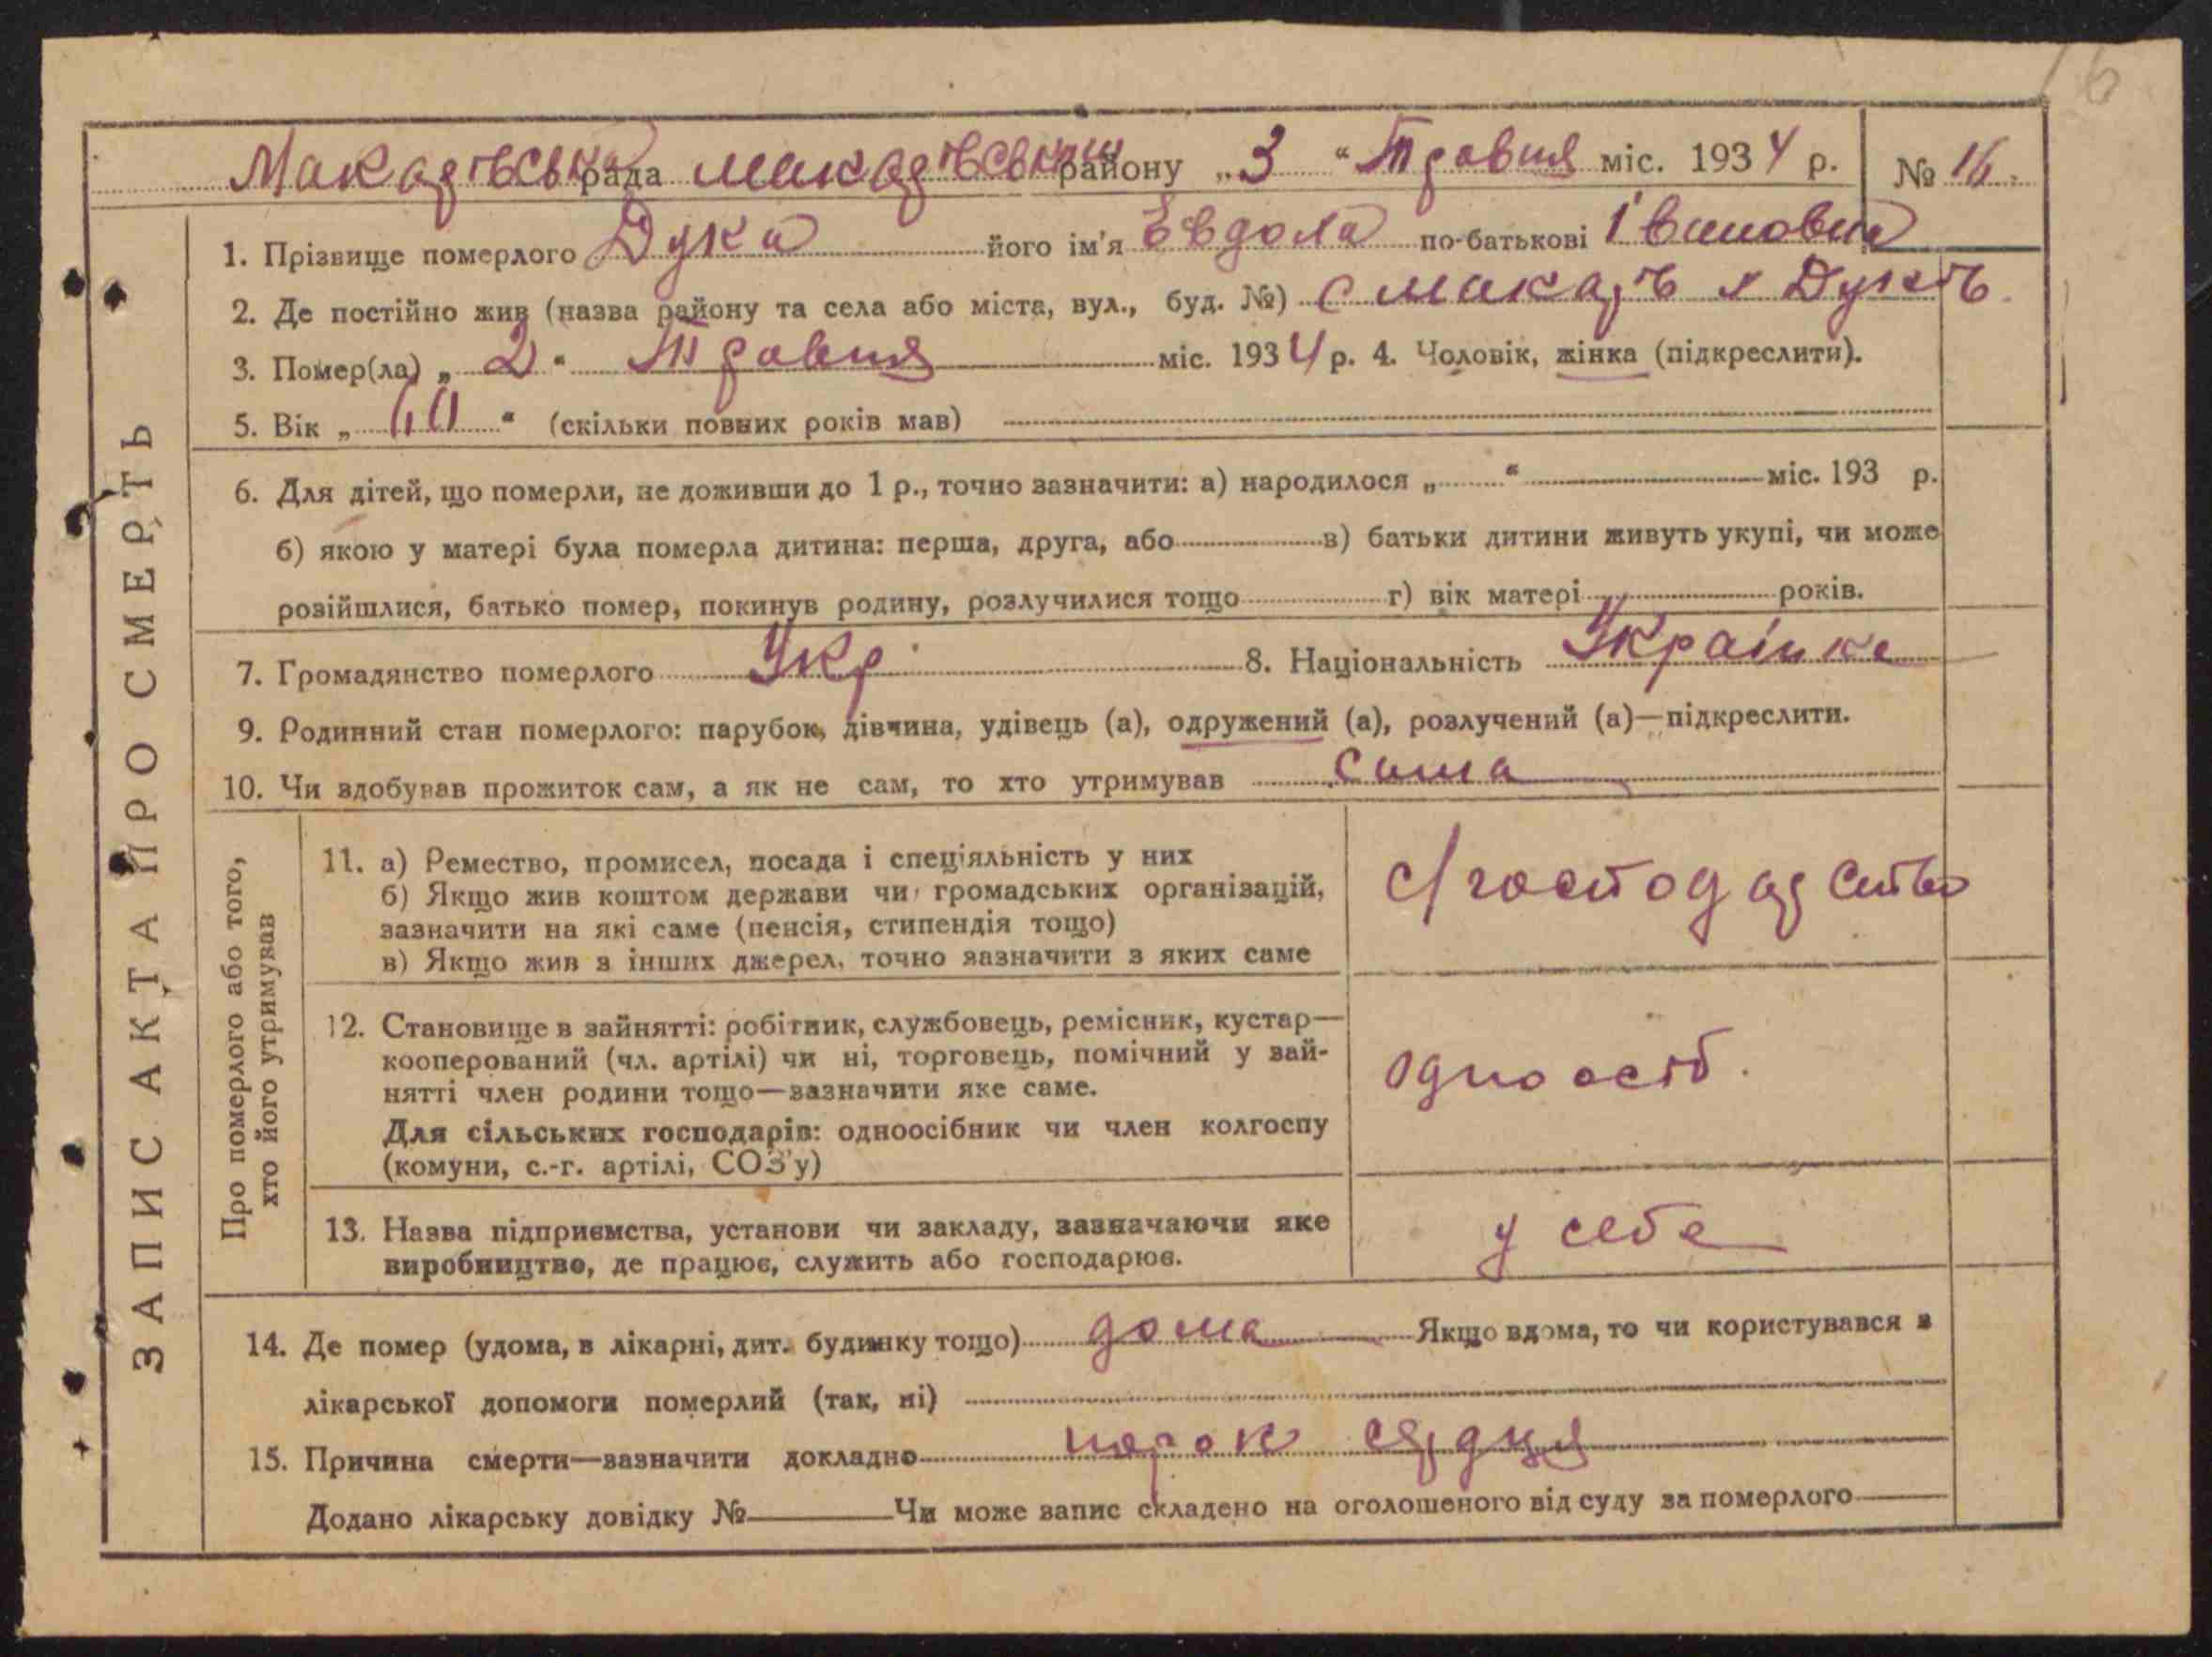 16
Макарівська рада Макарівськ району „3“ Травня міс. 1934 р. № 16.
1. Прізвище померлого Дука його ім'я Евдоха по-батькові Івановна
2. Де постійно жив (назва району та села або міста, вул., буд. №) с Макарів х Дуків
3. Помер(ла) „2“ Травня міс. 1934 р. 4. Чоловік, жінка (підкреслити).
5. Вік „60“ (скільки повних років мав)
6. Для дітей, що померли, не доживши до 1 р., точно зазначити: а) народилося „ “ міс. 193 р.
б) якою у матері була померла дитина: перша, друга, або в) батьки дитини живуть укупі, чи може
розійшлися, батько помер, покинув родину, розлучилися тощо г) вік матері років.
7. Громадянство померлого Укр 8. Національність Украінка
9. Родинний стан померлого: парубок, дівчина, удівець (а), одружений (а), розлучений (а)—підкреслити.
10. Чи здобував прожиток сам, а як не сам, то хто утримував сама
ЗАПИС АКТА ПРО СМЕРТЬ
Про померлого або того,
хто його утримував
11. а) Ремество, промисел, посада і спеціяльність у них
б) Якщо жив коштом держави чи громадських організацій,
зазначити на які саме (пенсія, стипендія тощо)
в) Якщо жив з інших джерел, точно зазначити з яких саме
с/господарство
12. Становище в зайнятті: робітник, службовець, ремісник, кустар—
кооперований (чл. артілі) чи ні, торговець, помічний у зай-
нятті член родини тощо—зазначити яке саме.
Для сільських господарів: одноосібник чи член колгоспу
(комуни, с.-г. артілі, СОЗ'у)
одноосіб.
13. Назва підприємства, установи чи закладу, зазначаючи яке
виробництво, де працює, служить або господарює.
у себе
14. Де помер (удома, в лікарні, дит. будинку тощо) дома Якщо вдома, то чи користувався з
лікарської допомоги померлий (так, ні)
15. Причина смерти—зазначити докладно порок сердця
Додано лікарську довідку № Чи може запис складено на оголошеного від суду за померлого